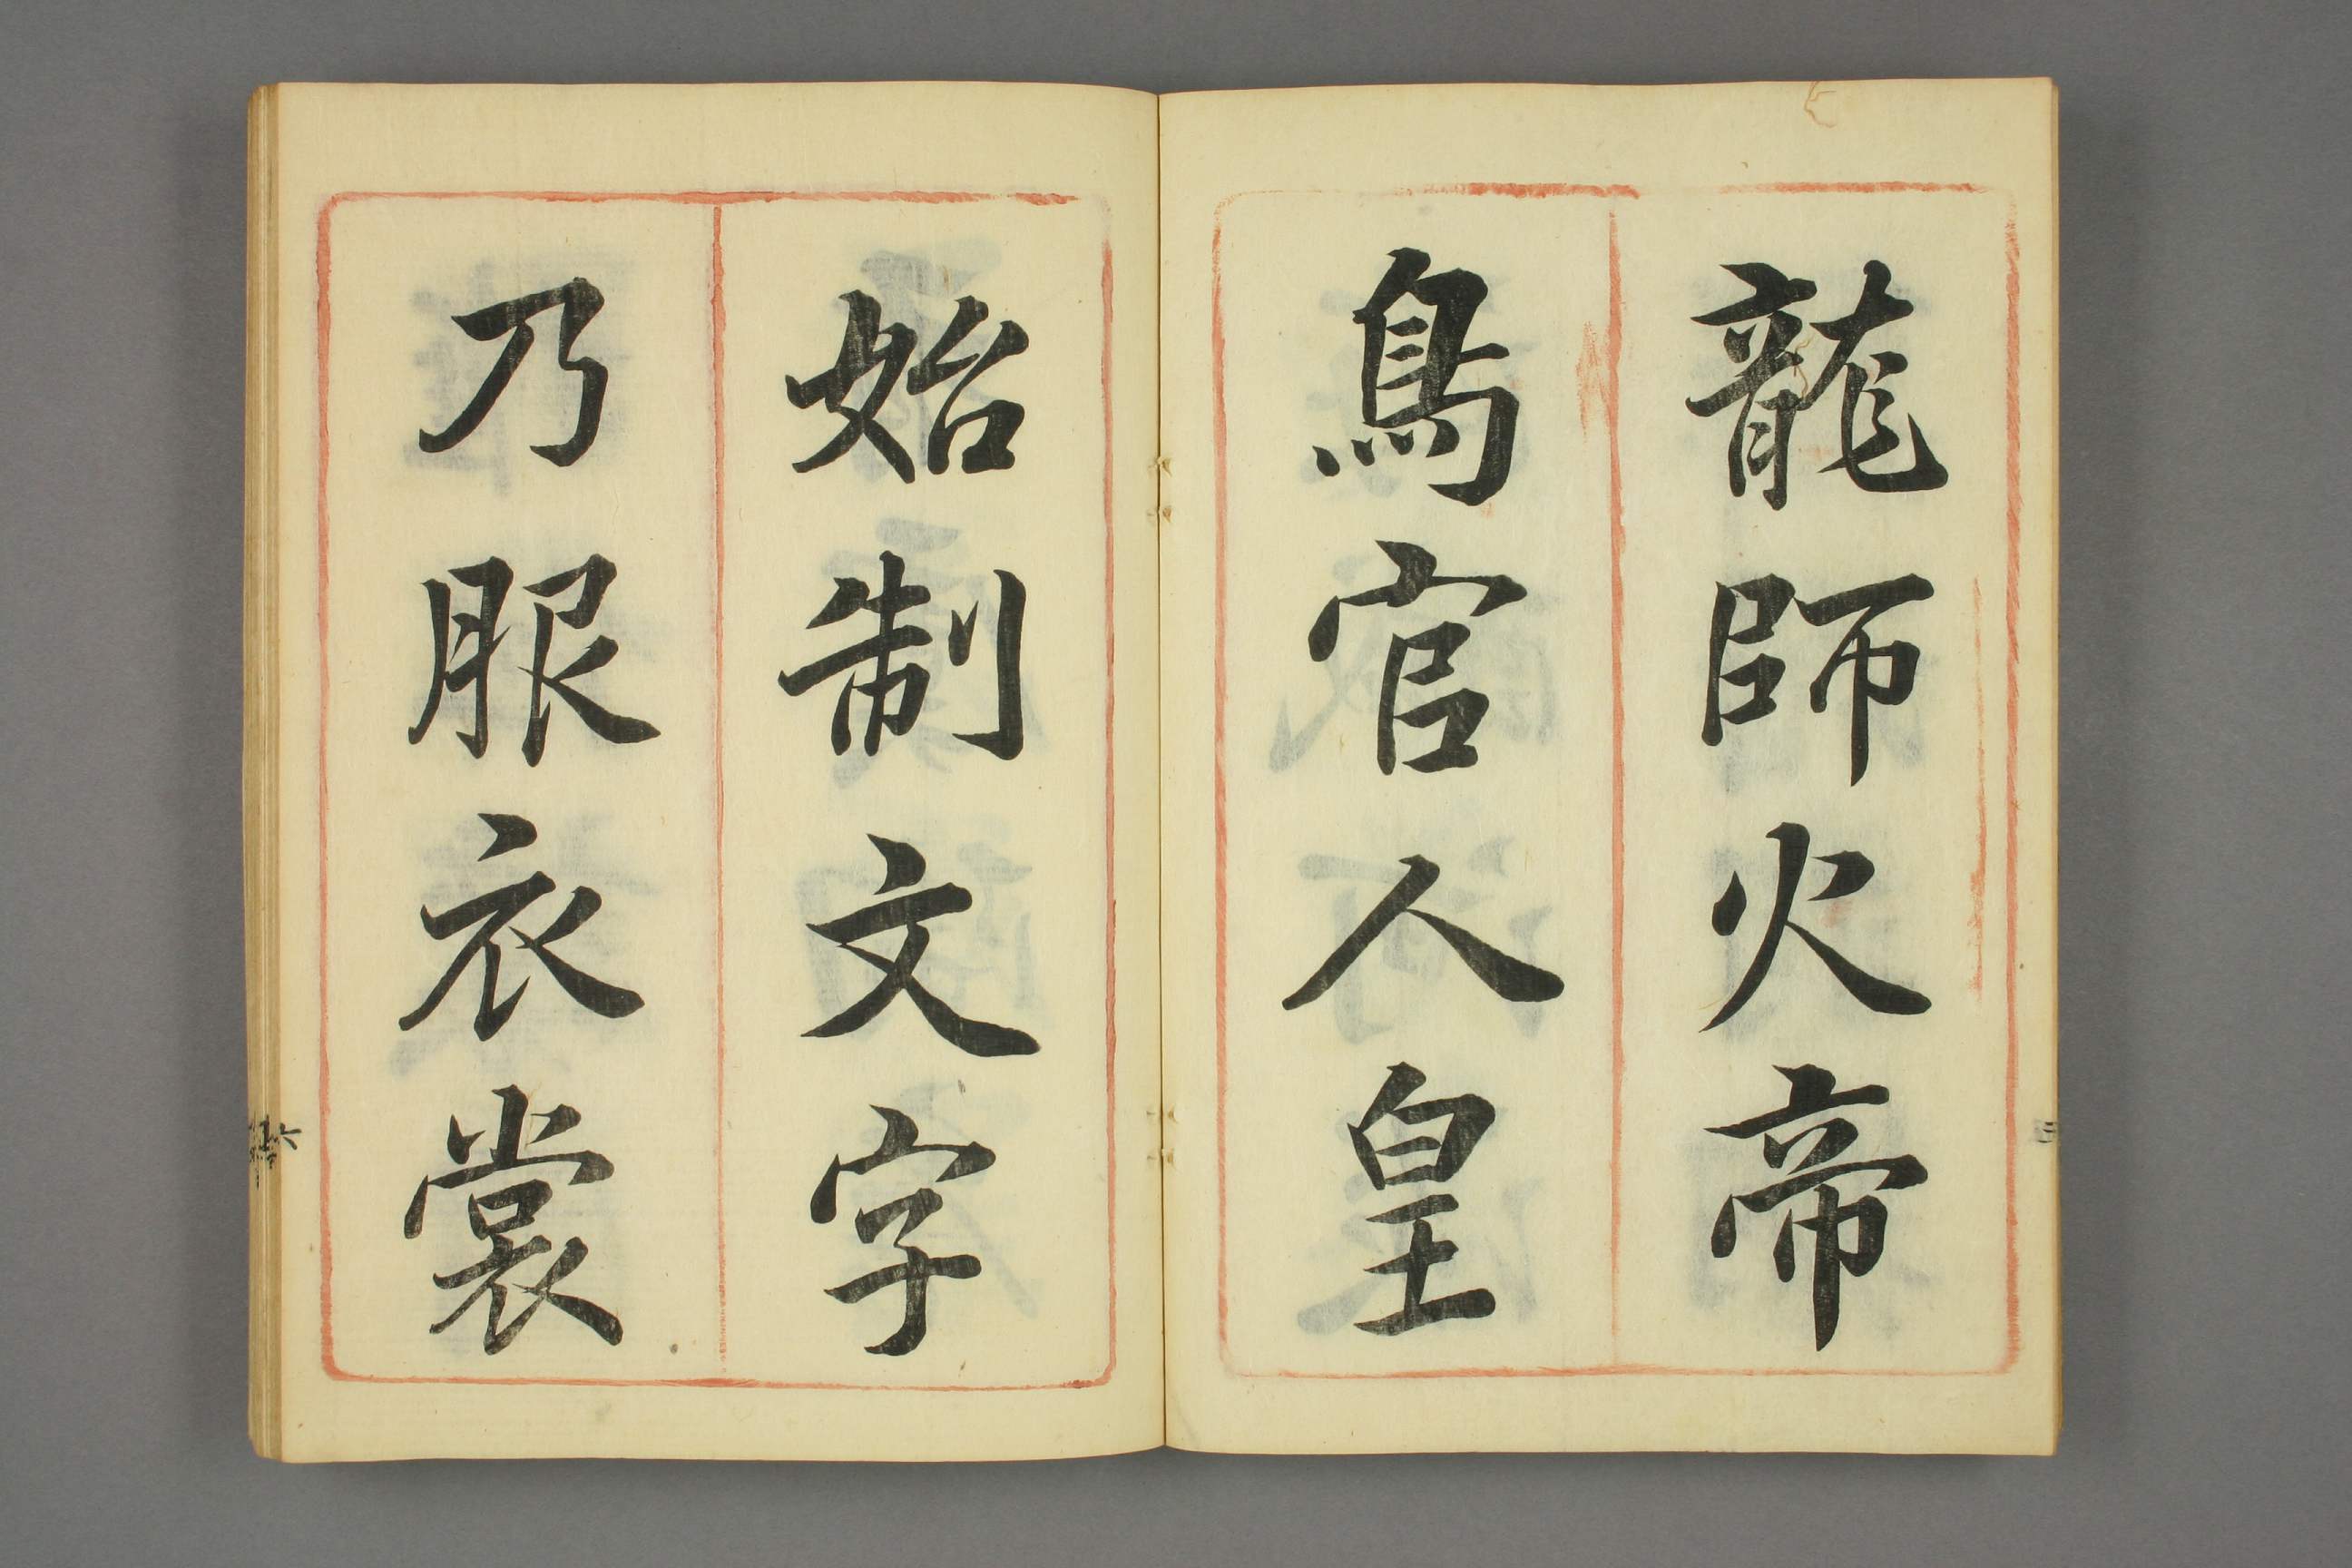 龍師火帝
鳥官人皇
始制文字
乃服衣裳